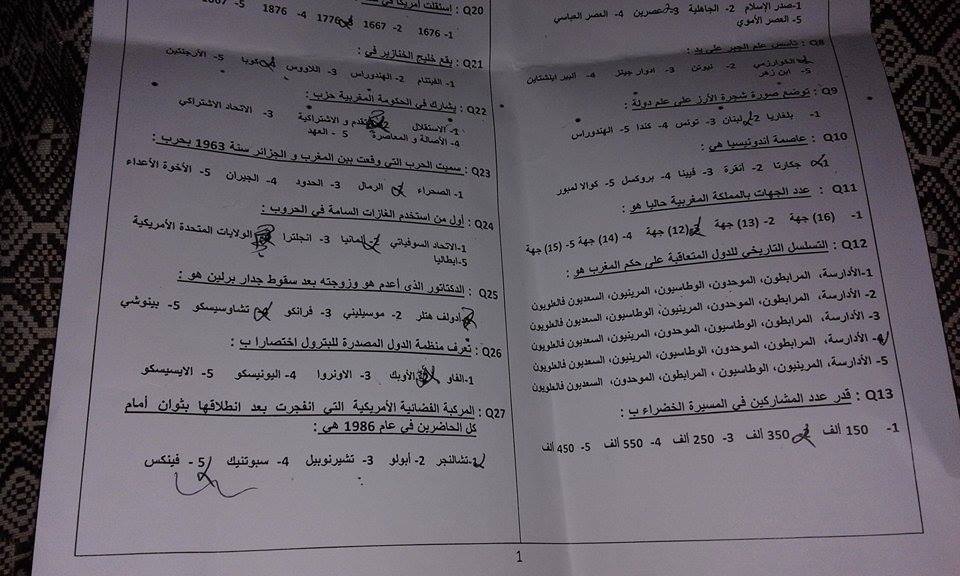 1-صدر الإسلام 2- الجاهلية 3-عصرين 4- العصر العباسي
5- العصر الأموي
Q8 : تأسس علم الجبر على يد :
الخوارزمي 2- نيوتن 3- ادوار جينر 4- ألبير اينشتاين
5- ابن زهر
Q9 : توضع صورة شجرة الأرز على علم دولة :
1- بلغاريا 2- لبنان 3- تونس 4- كندا 5- الهندوراس
Q10 : عاصمة أندونيسيا هي :
1- جكارتا 2- أنقرة 3- فيينا 4- بروكسل 5- كوالا لمبور
Q11 : عدد الجهات بالمملكة المغربية حاليا هو :
1- (16) جهة 2- (13) جهة 3- (12) جهة 4- (14) جهة 5- (15) جهة
Q12 : التسلسل التاريخي للدول المتعاقبة على حكم المغرب هو :
1-الأدارسة، المرابطون، الموحدون، الوطاسيون، المرينيون، السعديون فالعلويون
2- الأدارسة، المرابطون، الموحدون، المرينيون، الوطاسيون، السعديون فالعلويون
3- الأدارسة، المرابطون، الوطاسيون، الموحدون، المرينيون، السعديون فالعلويون
4- الأدارسة، المرابطون، الموحدون، الوطاسيون، المرينيون، السعديون فالعلويون
5- الأدارسة، المرينيون، الوطاسيون ، المرابطون، الموحدون، السعديون فالعلويون
Q13 : قدر عدد المشاركين في المسيرة الخضراء ب :
1- 150 ألف 2- 350 ألف 3- 250 ألف 4- 550 ألف 5- 450 ألف
Q20 : إستقلت أمريكا في
1- 1676 2- 1667 3- 1776 4- 1876 5- 1667
Q21 : يقع خليج الخنازير في :
1- الفيتنام 2- الهندوراس 3- اللاووس 4- كوبا 5- الأرجنتين
Q22 : يشارك في الحكومة المغربية حزب :
1- الاستقلال 2- التقدم و الاشتراكية 3- الاتحاد الاشتراكي
4- الأصالة و المعاصرة 5 - العهد
Q23 : سميت الحرب التي وقعت بين المغرب و الجزائر سنة 1963 بحرب :
1- الصحراء 2- الرمال 3- الحدود 4- الجيران 5- الأخوة الأعداء
Q24 : أول من استخدم الغازات السامة في الحروب :
1-الاتحاد السوفياتي 2- ألمانيا 3- انجلترا 4- الولايات المتحدة الأمريكية
5-ايطاليا
Q25 : الدكتاتور الذي أعدم هو وزوجته بعد سقوط جدار برلين هو :
أدولف هتلر 2- موسيليني 3- فرانكو 4- تشاوسيسكو 5- بينوشي
Q26 : تعرف منظمة الدول المصدرة للبترول اختصارا ب :
1-الفاو الأوبك 3- الاونروا 4- اليونيسكو 5- الايسيسكو
Q27 : المركبة الفضائية الأمريكية التي انفجرت بعد انطلاقها بثوان أمام
كل الحاضرين في عام 1986 هي :
1-تشالنجر 2- أبولو 3- تشيرنوبيل 4- سبوتنيك 5 - فينكس
1